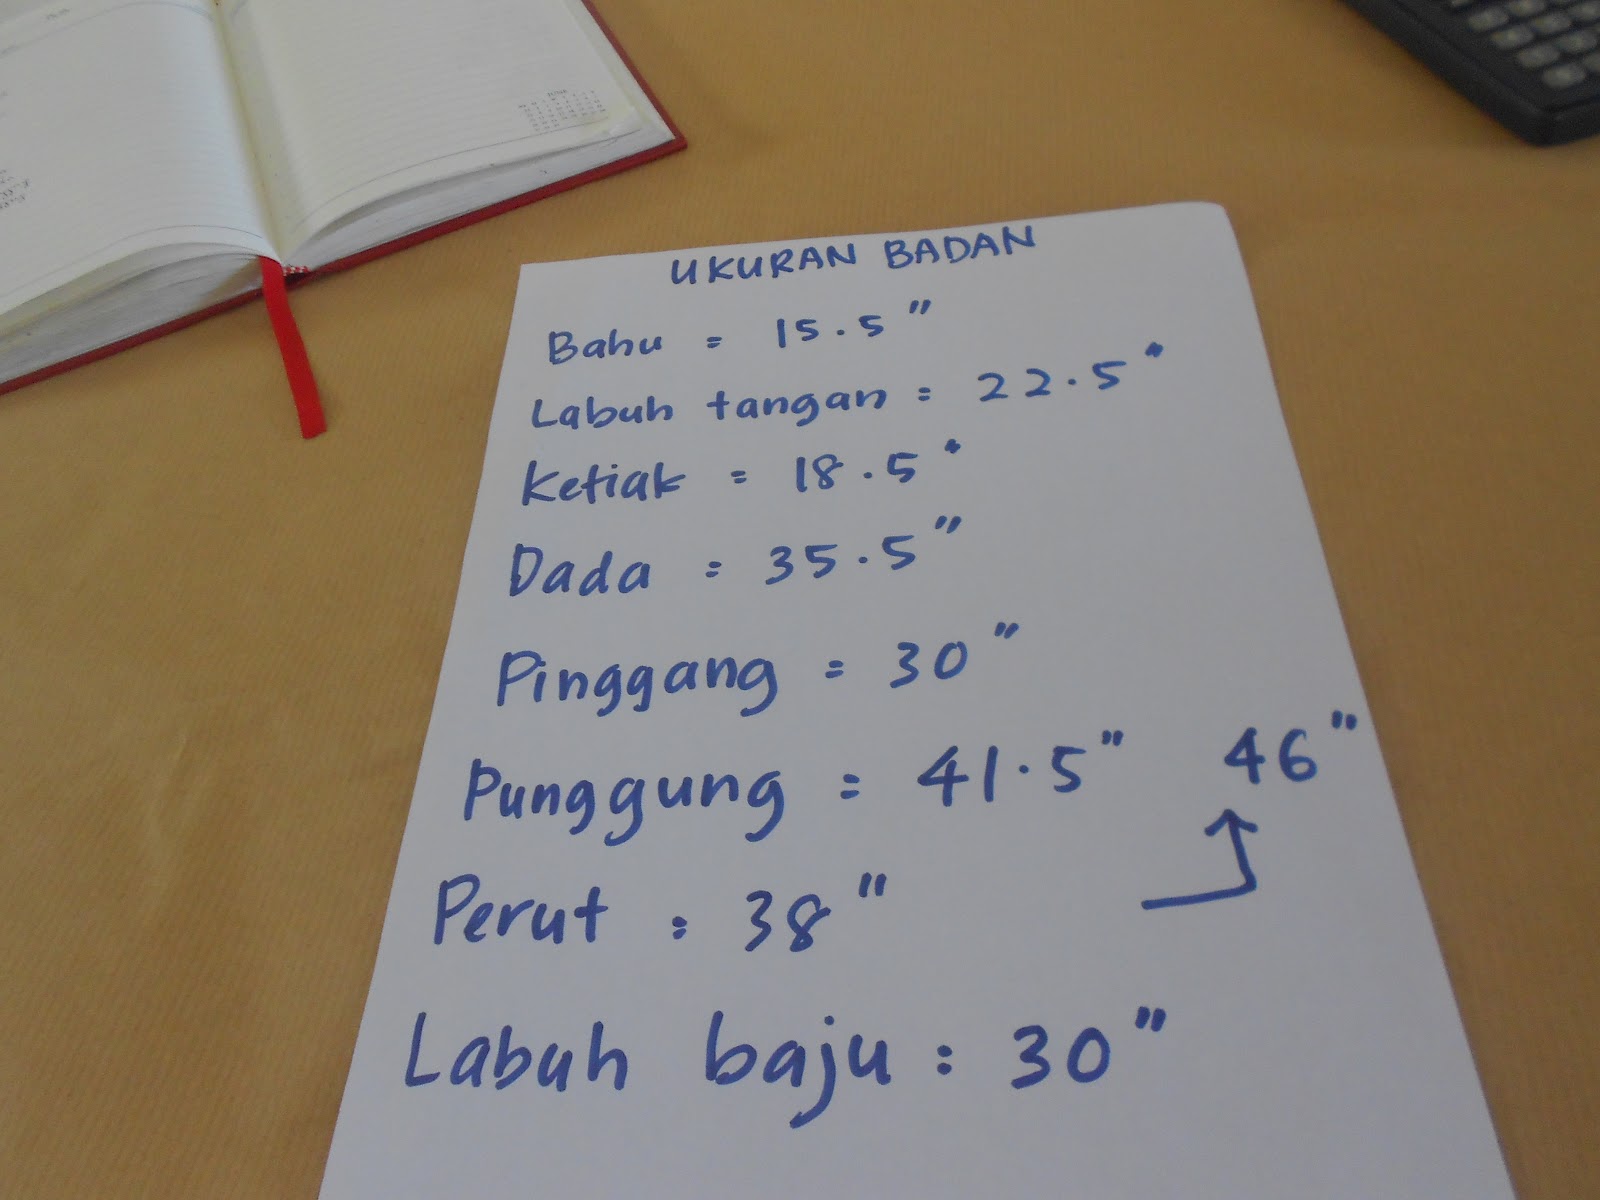 UKURAN BADAN
Bahu = 15.5"
Labuh tangan = 22.5"
Ketiak = 18.5"
Dada = 35.5"
Pinggang = 30"
Punggung = 41.5" 46"
Perut = 38"
Labuh baju = 30"